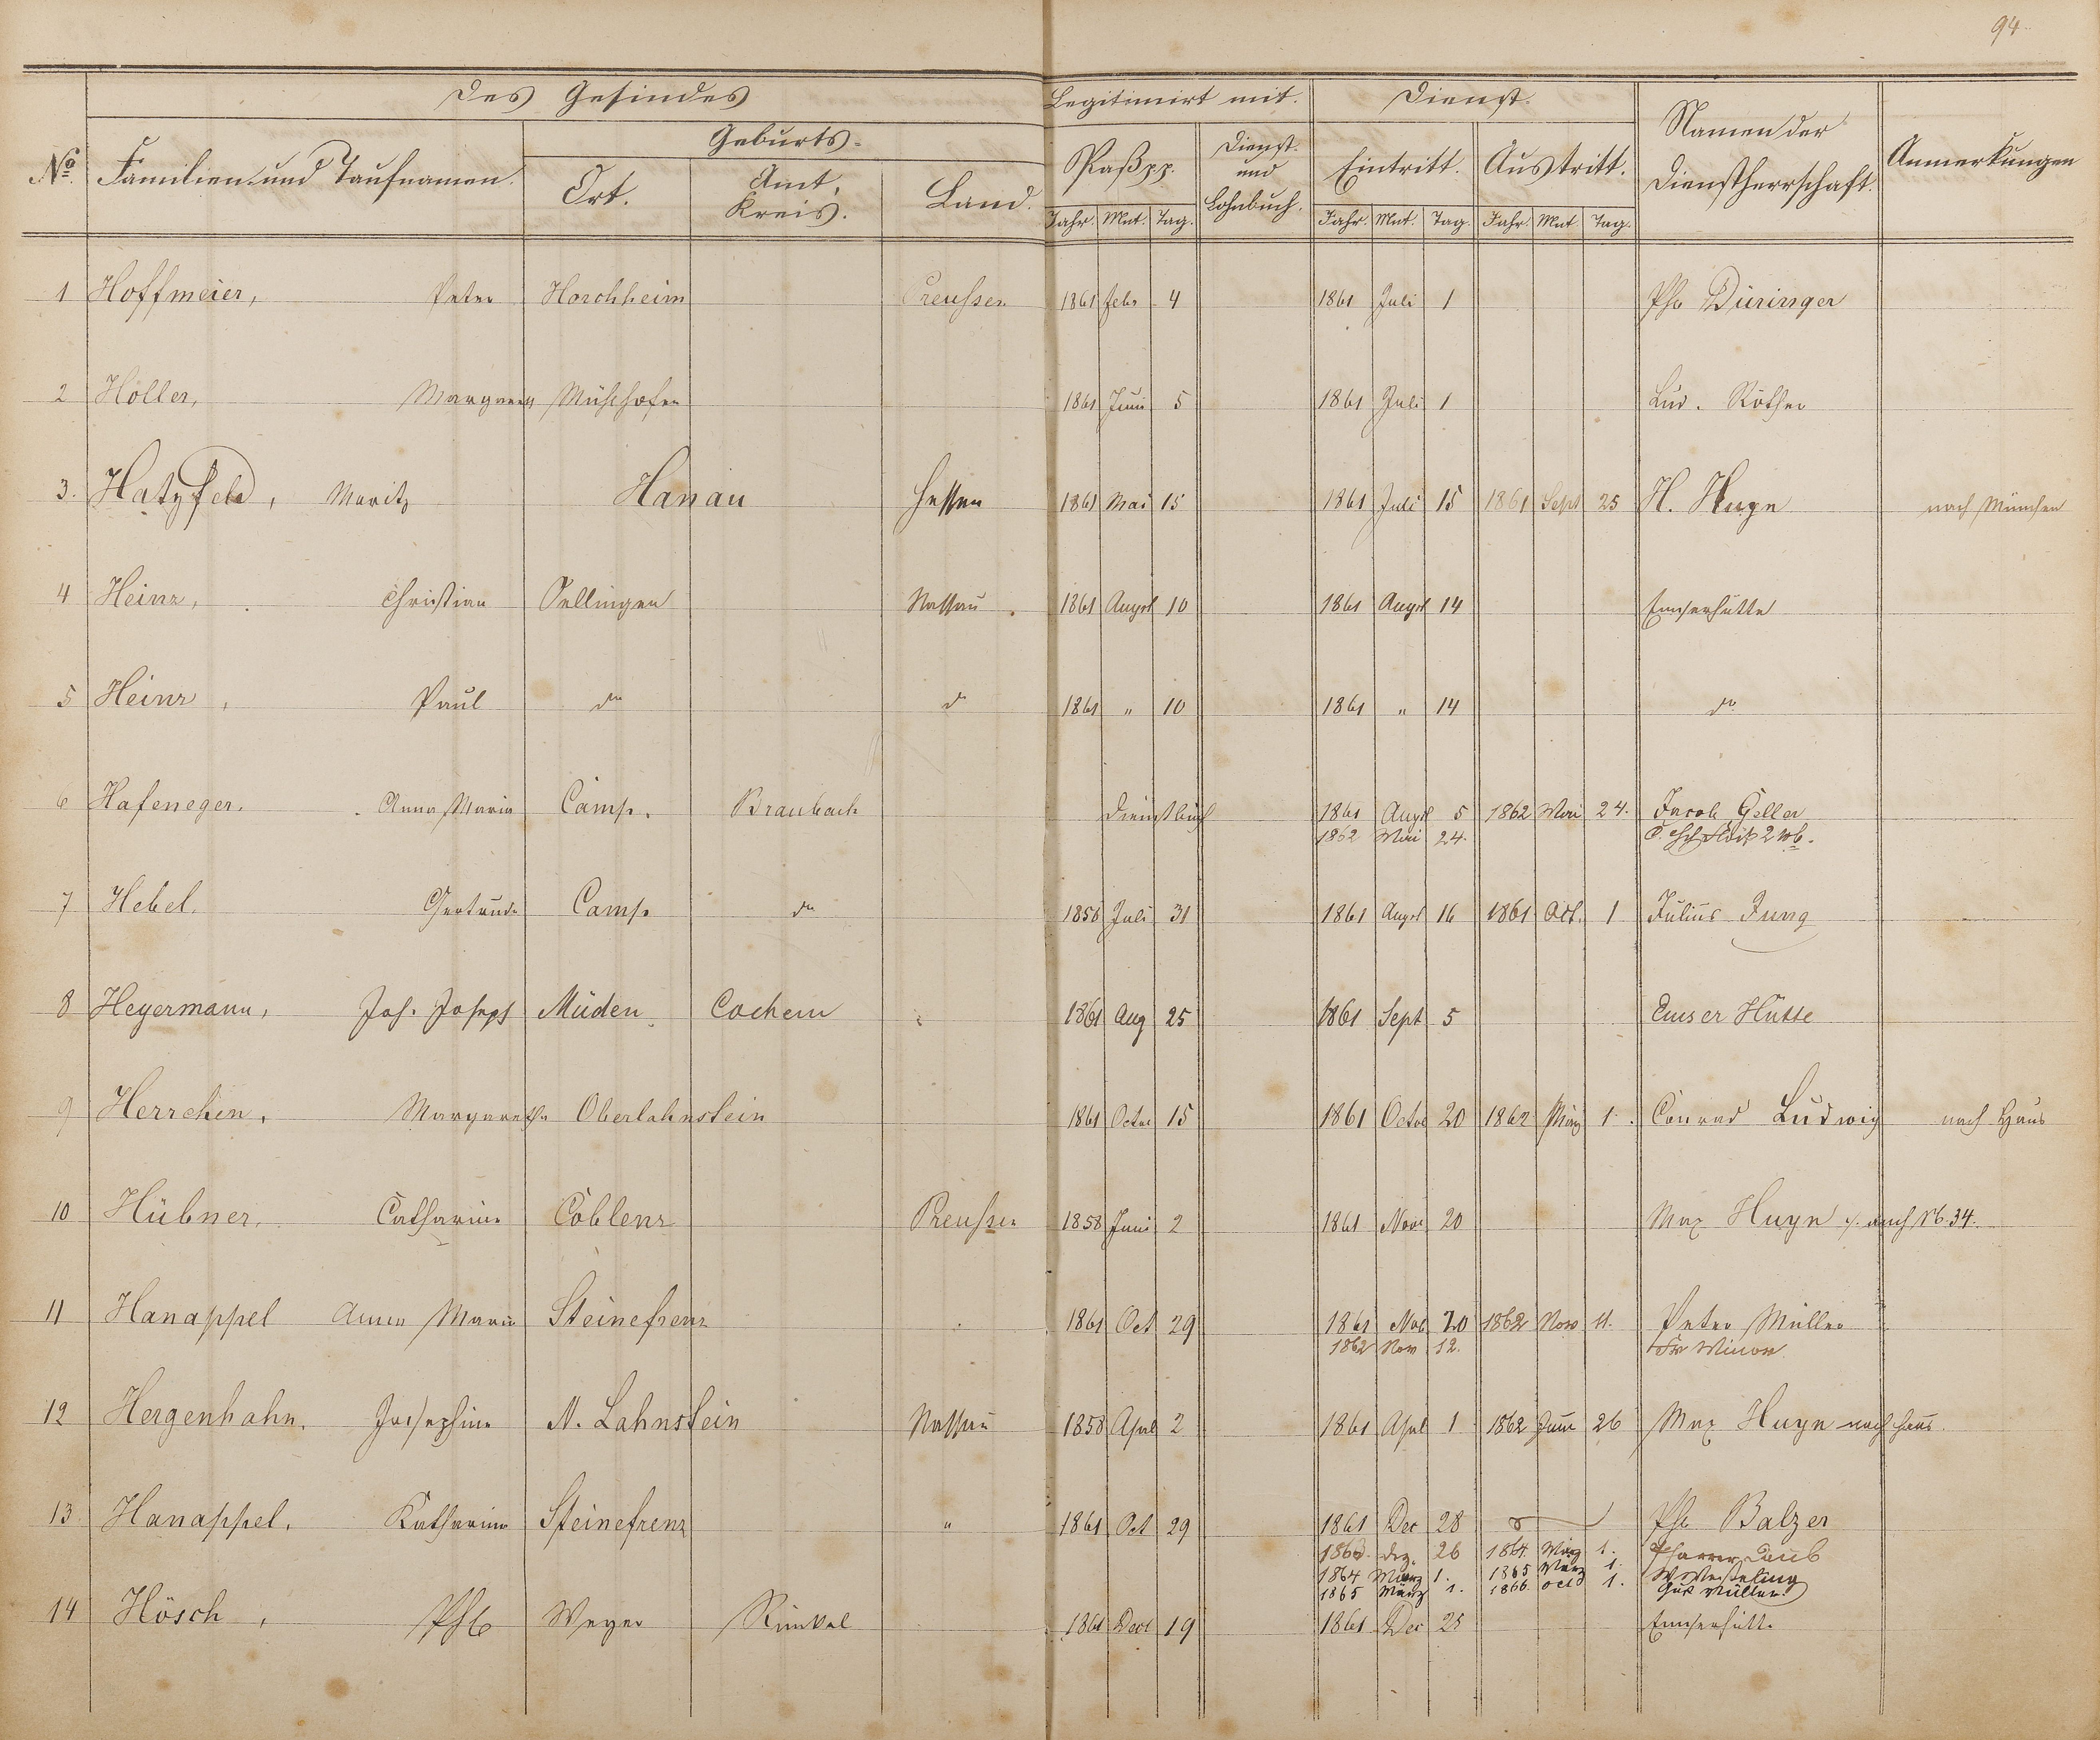 94.
Des Gesindes Legitimirt mit. Dienst.
Geburts-
No. Familien- und Taufnamen. Ort. Amt, Kreis. Land. Paß pp. Dienst- und Lohnbuch. Eintritt. Austritt. Namen der Dienstherrschaft. Anmerkungen
Jahr. Mnt. Tag. Jahr. Mnt. Tag. Jahr. Mnt Tag.
1 Hoffmeier, Peter Horchheim Preussen 1861 Febr 4 1861 Juli 1 Ph. Düringer
2 Holler, Margareth Mühlhofen 1861 Juni 5 1861 Juli 1 Lud. Röther
3. Hatzfeld, Moritz Hanau Hessen 1861 Mai 15 1861 Juli 15 1861 Sept 25 H. Huyn nach München
4 Heinz, Christian Sellingen Nassau. 1861 Augst 10 1861 Augst 14 Emserhütte
5 Heinz, Paul do d 1861 " 10 1861 " 14 do
6 Hafeneger. Anna Maria Camp. Braubach Dienstbuch 1861 Augst 5 1862 Mai 24. Jacob Geller
1862 Mai 24.
7 Hebel. Gertrude Camp do 1856 Juli 31 1861 Augst 16 1861 Oct. 1 Julius Jung
8 Heyermann, Joh. Joseph Müden Cochem 1861 Aug 25 1861 Sept 5 Emser Hütte
9 Herrchen, Margarethe Oberlahnstein 1861 Octbr 15 1861 Octbr 20 1862 März 1. Conrad Ludwig nach Haus
10 Hübner, Catharine Coblenz Preussen 1858 Juni 2 1861 Novr 20 Max Huyn s. auch No. 34.
11 Hanappel Anna Maria Steinefrenz 1861 Oct 29 1861 Nov 20 1862 Nov 11. Peter Müller
1862 Nov 12. Fr Minor
12 Hergenhahn, Josephine N. Lahnstein Nassau 1858 April 2 1861 April 1 1862 Juni 26 Max Huyn nach Haus.
13 Hanappel. Katharine Steinefrenz " 1861 Oct 29 1861 Dec 28 Ph Balzer
1863. Dez. 26 1864. März 1. Pfarrer
1864 März 1. 1865 März 1.
1865 März 1. 1866. Oct 1. Müller
14 Hösch, Ph. Weyer Runkel 1861 Decbr 19 1861 Dec 25 Emserhütte